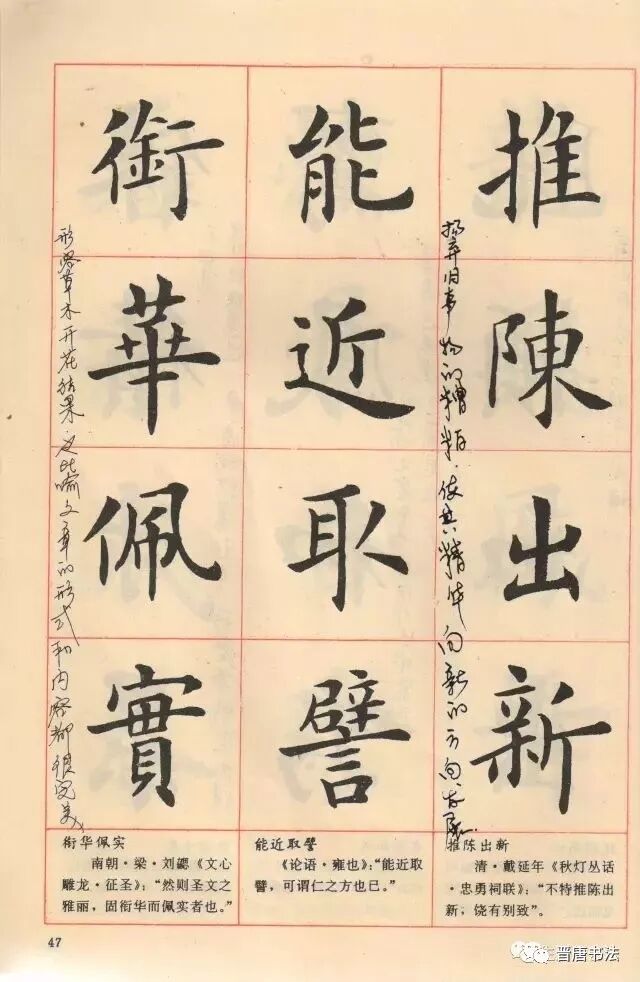 推陳出新
扬弃旧事物的糟粕.其精华向新的方向
能近取譬
銜華佩實
形容草木开花结果 又比喻文章的形式和内容都很完美
衔华佩实
南朝·梁·刘勰《文心
雕龙·征圣》:“然则圣文之
雅丽,固衔华而佩实者也。”
能近取譬
《论语·雍也》:“能近取
譬,可谓仁之方也已。”
推陈出新
清·戴延年《秋灯丛话
·忠勇祠联》:“不特推陈出
新,饶有别致”。
47
晋唐书法